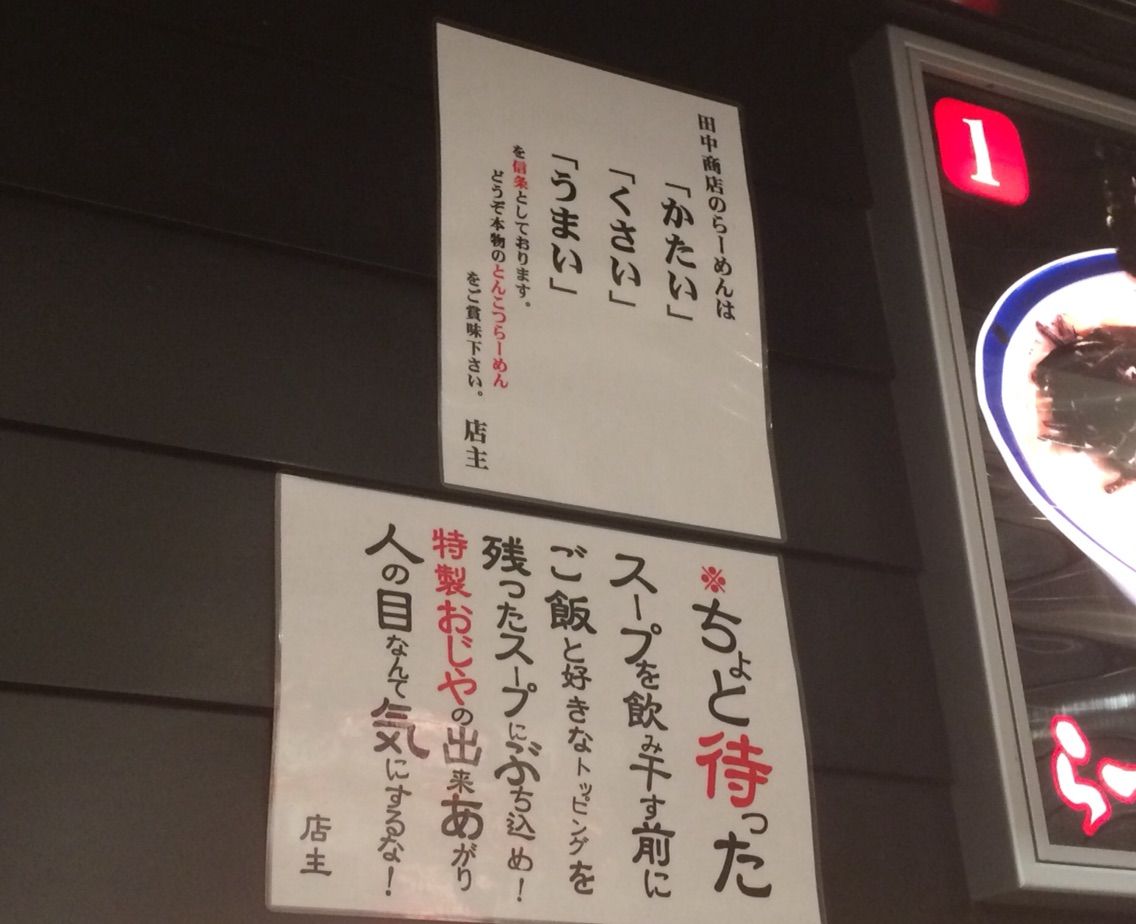 田中商店のらーめんは
「かたい」
「くさい」
「うまい」
を信条としております。
どうぞ本物のとんこつらーめん
をご賞味下さい。 店主
※ちょと待った
スープを飲み干す前に
ご飯と好きなトッピングを
残ったスープにぶち込め！
特製おじやの出来あがり
人の目なんて気にするな！
店主
1
らー